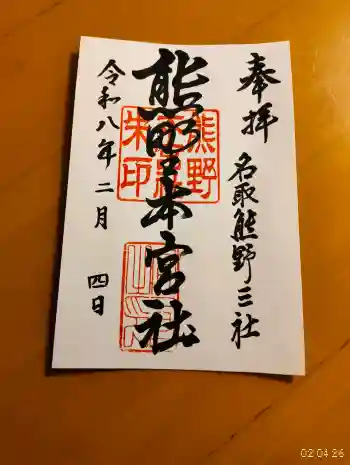 奉拝
名取熊野三社
熊野本宮社
熊野
朱印
令和八年二月
四日
02 04 26